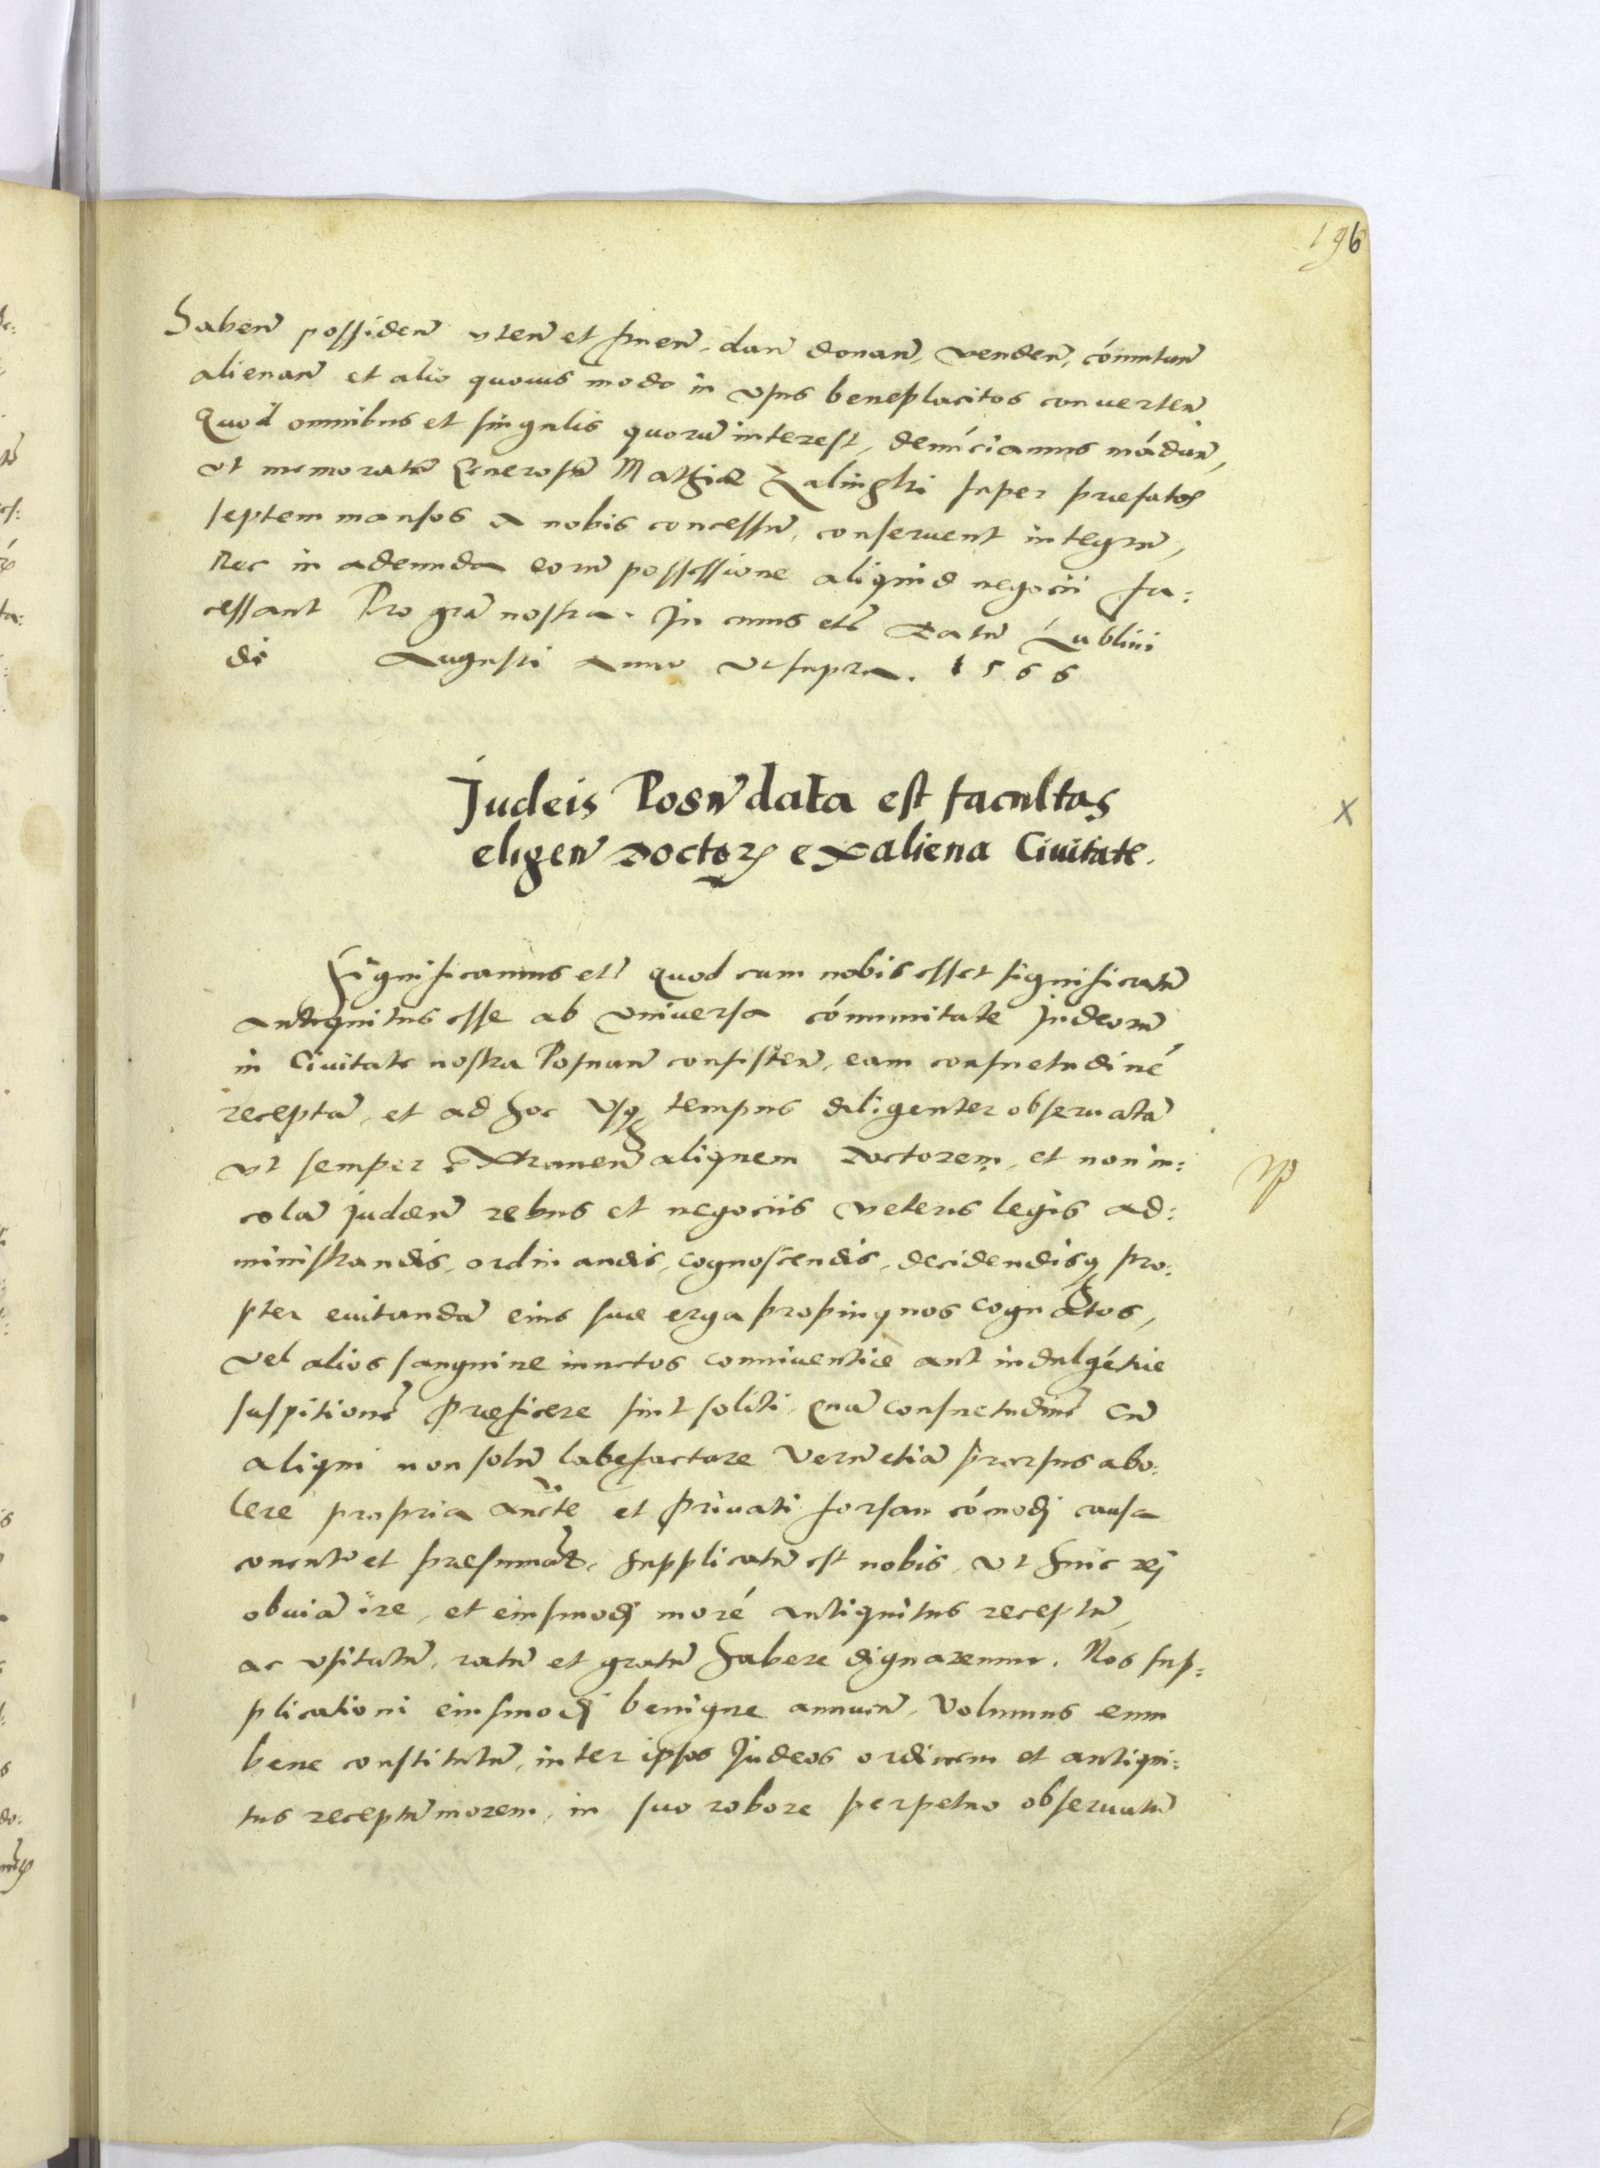 196
Haben̄ possiden̄ vten̄ et fruen̄, dan̄ donan̄, venden̄, cómutan̄
alienan̄ et alio quouis modo in vsus beneplacitos conuerten̄
Quod omnibus et singulis quorū interest, denúciamus mádan̄,
vt memoratū Generosū Mathiæ Zalinski super præfatos
septem mansos a nobis concessū, conseruent integrū,
Nec in adeunda eorū possessione aliquid negocii fa:
cessant Pro grā nostra. In cuius etc̄ Datū Lublini
die Augusti Anno vt supra. 1566
Judeis Posn̄ data est facultas
eligen̄ Doctorē ex aliena Ciuitate.
Significamus etc̄ Quod cum nobis esset significatū
antiquitus esse ab vniuersa cómunitate Judeorū
in Ciuitate nostra Posnan̄ consisten̄, eam consuetudiné
receptā, et ad hoc vsq̨ tempus diligenter obseruatā
vt semper extraneū aliquem Doctorem, et non in:
colā judæū rebus et negociis veteris legis ad:
ministrandis, ordinandis, cognoscendis, decidendisq̨ pro:
pter euitandā eius suæ erga propinquos cognatos,
vel alios sanguine iunctos conniuentiæ aut indulgétiæ
suspitionē præficere sint soliti, Quā consuetudinē cū
aliqui non solū labefactare verū etiā prorsus abo:
lere propria aucte et priuati forsan cómodj causa
conentr et præsumāt, supplicatū est nobis, vt huic rej
obuiā ire, et eiusmodj moré antiquitus receptū,
ac vsitatū, ratū et gratū habere dignaremur. Nos sup:
plicationi eiusmodj benigne annuen̄, Volumus eum
bene constitutū, inter ipsos Judeos ordinem et antiqui:
tus receptū morem, in suo robore perpetuo obseruatū